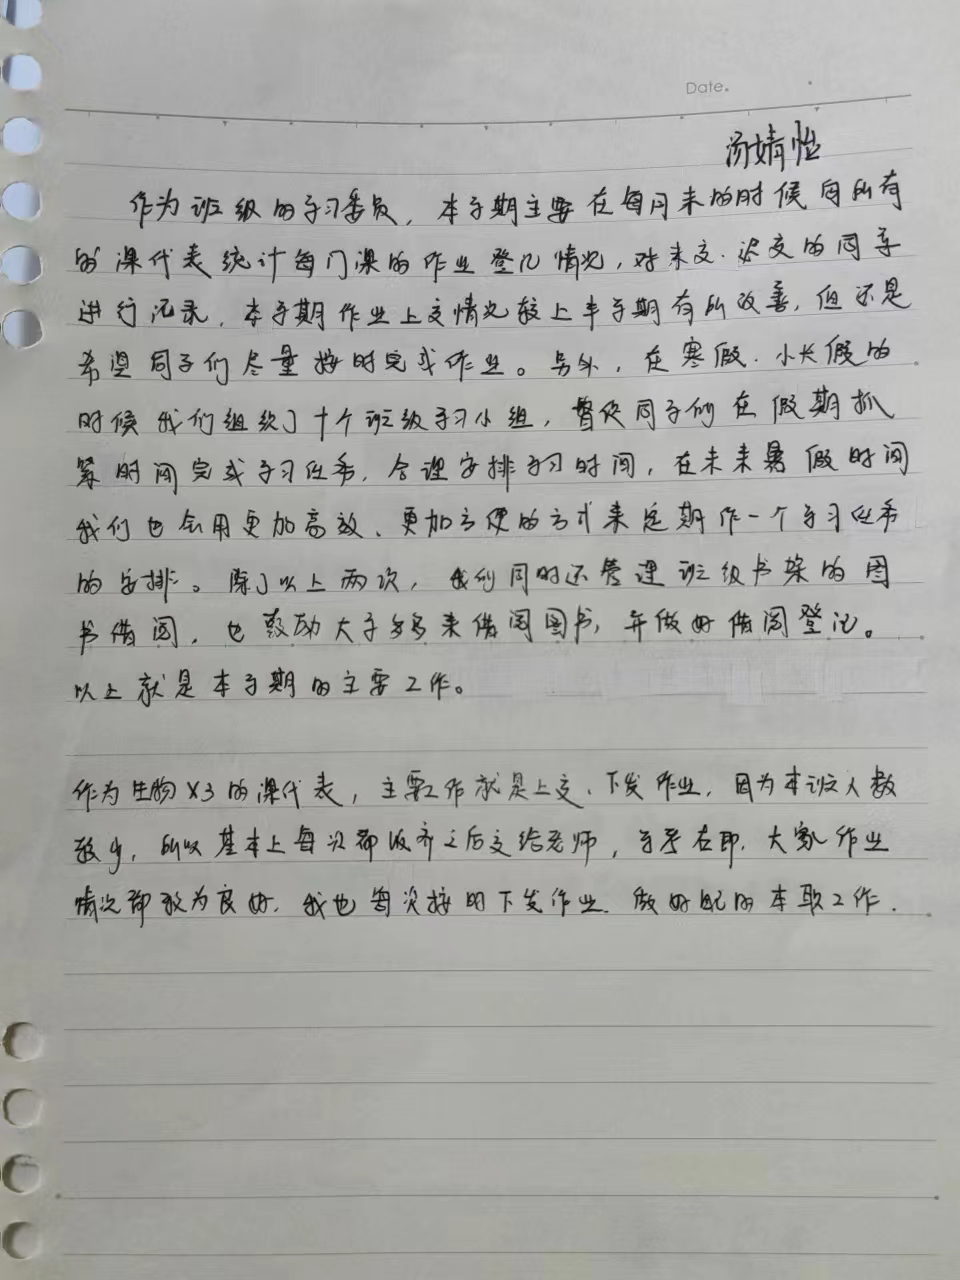 Date.
汤婧怡
作为班级的学习委员，本学期主要在每月末的时候向所有
的课代表统计每门课的作业登记情况，对未交、迟交的同学
进行记录，本学期作业上交情况较上半学期有所改善，但还是
希望同学们尽量按时完成作业。另外，在寒假、小长假的
时候我们组织了十个班级学习小组，督促同学们在假期抓
紧时间完成学习任务，合理安排学习时间，在未来暑假时间
我们也会用更加高效、更加方便的方式来定期作一个学习任务
的安排。除了以上两次，我们同时还管理班级书架的图
书借阅，也鼓励大学多多来借阅图书，并做好借阅登记。
以上就是本学期的主要工作。
作为生物X3的课代表，主要工作就是上交、下发作业，因为本班人数
较少，所以基本上每次都收齐之后交给老师，学考在即，大家作业
情况都较为良好，我也每次按时下发作业，做好自己的本职工作.